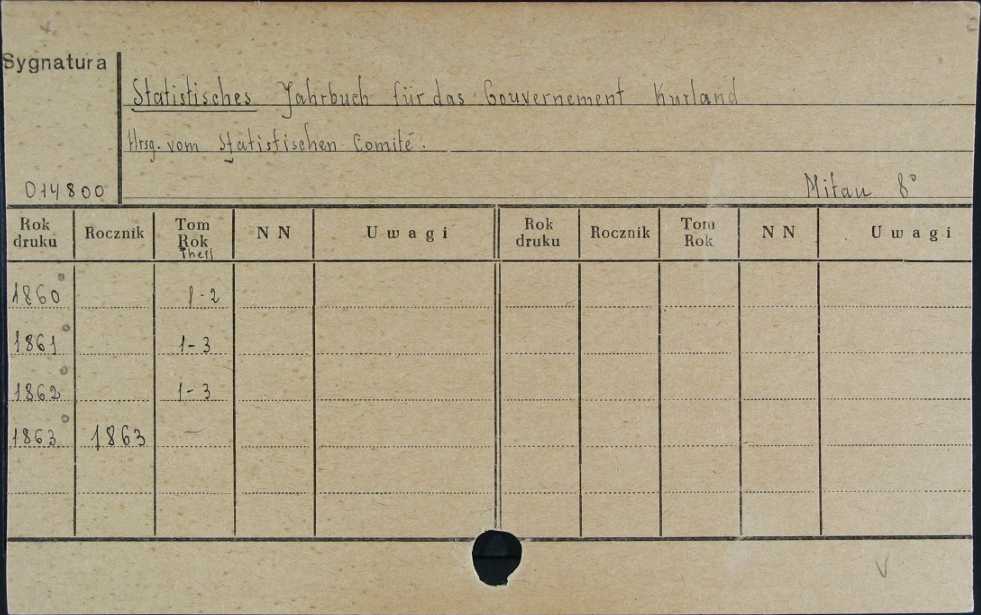 Sygnatura
Statistisches Jahrbuch für das Gouvernement Kurland
Hrsg. vom Statistischen Comité.
014800
Mitau 8°
Rok druku Rocznik Tom Rok NN Uwagi Rok druku Rocznik Tom Rok NN Uwagi
1860° 1-2
1861° 1-3
1862° 1-3
1863° 1863 —
V